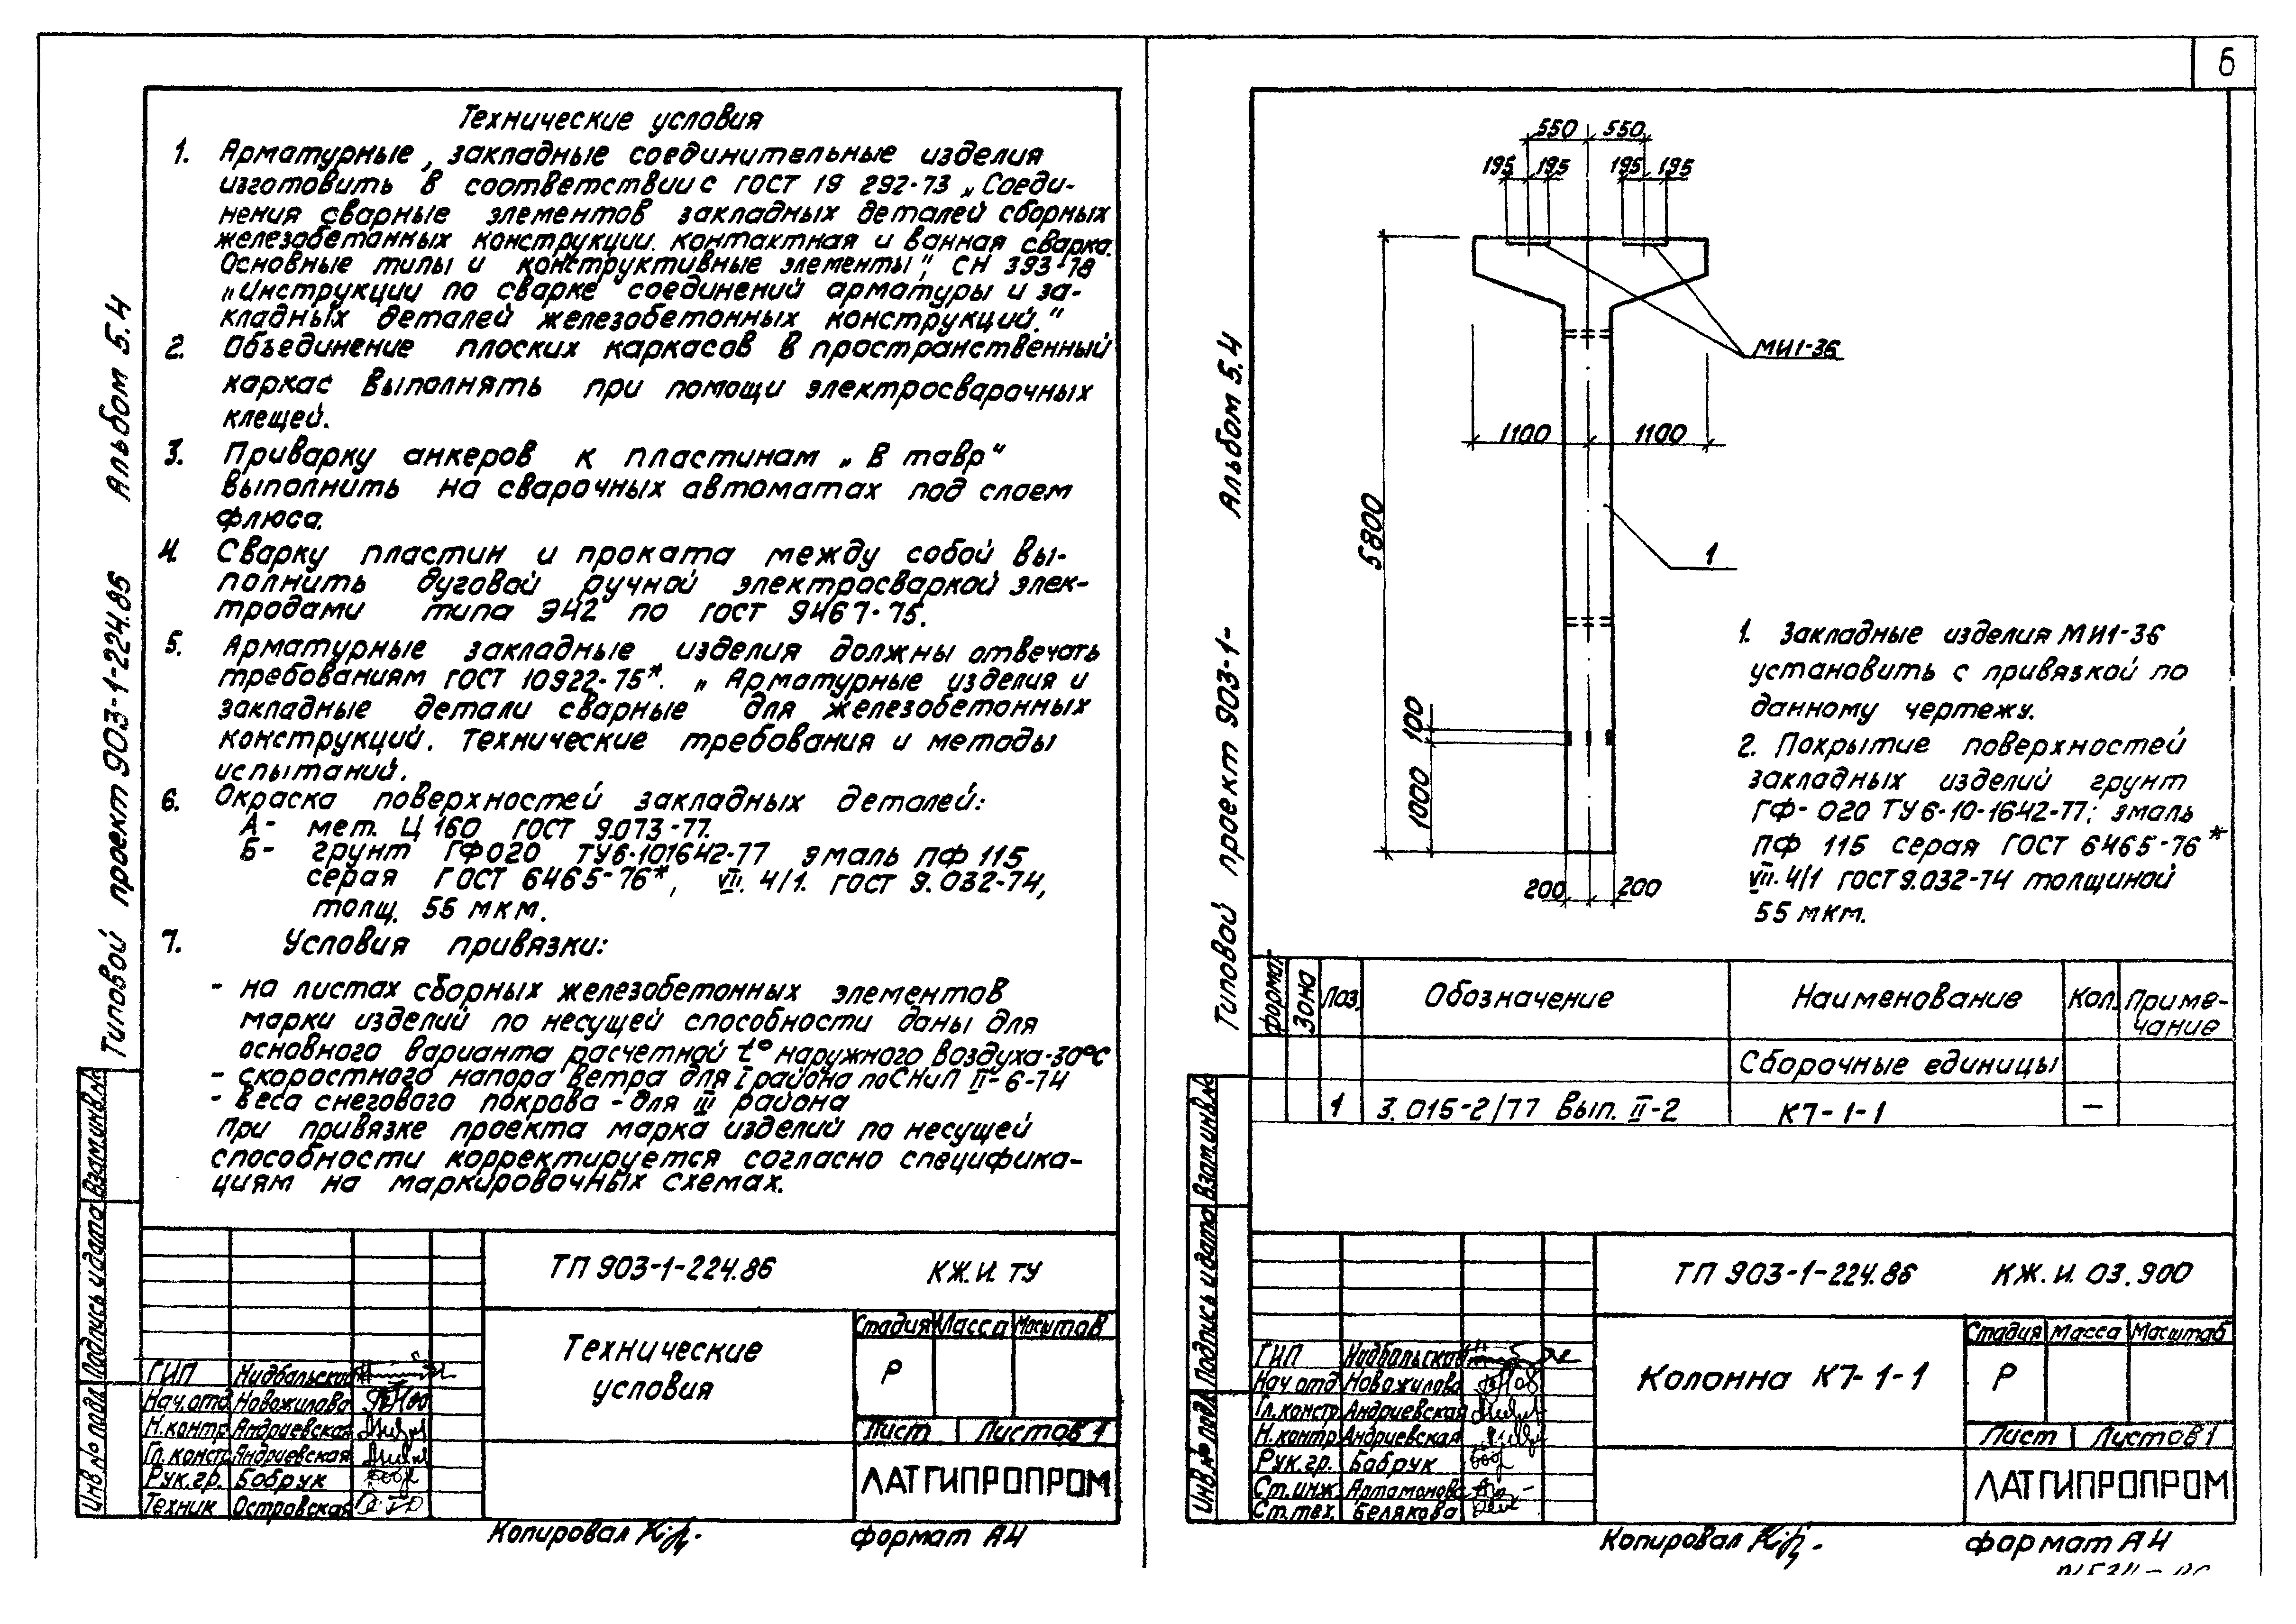 6
Технические условия
1. Арматурные, закладные соединительные изделия
изготовить в соответствии с ГОСТ 19 292-73 „Соеди-
нения сварные элементов закладных деталей сборных
железобетонных конструкции. контактная и ванная сварка.
Основные типы и конструктивные элементы", СН 393-78
„Инструкции по сварке соединений арматуры и за-
кладных деталей железобетонных конструкций."
2. Объединение плоских каркасов в пространственный
каркас выполнять при помощи электросварочных
клещей.
3. Приварку анкеров к пластинам „в тавр"
выполнить на сварочных автоматах под слоем
флюса.
4. Сварку пластин и проката между собой вы-
полнить дуговой ручной электросваркой элек-
тродами типа Э42 по ГОСТ 9467-75.
5. Арматурные закладные изделия должны отвечать
требованиям ГОСТ 10922-75*. „Арматурные изделия и
закладные детали сварные для железобетонных
конструкций. Технические требования и методы
испытаний.
6. Окраска поверхностей закладных деталей:
А- мет. Ц 160 ГОСТ 9.073-77.
Б- грунт ГФ020 ТУ6-101642-77 эмаль ПФ 115
серая ГОСТ 6465-76*, VII. 4/1. ГОСТ 9.032-74,
толщ. 55 мкм.
7. Условия привязки:
- на листах сборных железобетонных элементов
марки изделий по несущей способности даны для
основного варианта расчетной t° наружного воздуха-30°С
- скоростного напора ветра для I района по СНиП II-6-74
- веса снегового покрова - для III района
при привязке проекта марка изделий по несущей
способности корректируется согласно специфика-
циям на маркировочных схемах.
Типовой проект 903-1-224.85 Альбом 5.4
Взам.инв.№
Подпись и дата
Инв.№ подл.
ТП 903-1-224.86 КЖ.И. ТУ
Технические
условия
Стадия Масса Масштаб
Р
Лист Листов 1
ЛАТГИПРОПРОМ
ГИП Нидбальский
Нач.отд Новожилова
Н.контр Андриевская
Гл.констр Андриевская
Рук.гр. Бобрук
Техник Островская
Копировал формат А4
550 550
195 195 195 195
МИ1-36
1100 1100
5800
1
100
1000
200 200
1. Закладные изделия МИ1-36
установить с привязкой по
данному чертежу.
2. Покрытие поверхностей
закладных изделий грунт
ГФ-020 ТУ6-10-1642-77; эмаль
ПФ 115 серая ГОСТ 6465-76*
VII.4/1 ГОСТ 9.032-74 толщиной
55 мкм.
Типовой проект 903-1- Альбом 5.4
Формат Зона Поз. Обозначение Наименование Кол. Приме-
чание
Сборочные единицы
1 3.015-2/77 Вып. II-2 К7-1-1 —
Взам.инв.№
Подпись и дата
Инв.№ подл.
ТП 903-1-224.86 КЖ.И.03.900
Колонна К7-1-1
Стадия Масса Масштаб
Р
Лист Листов 1
ЛАТГИПРОПРОМ
ГИП Нидбальский
Нач.отд Новожилова
Гл.констр Андриевская
Н.контр Андриевская
Рук.гр. Бобрук
Ст.инж. Артамонова
Ст.тех. Белякова
Копировал формат А4